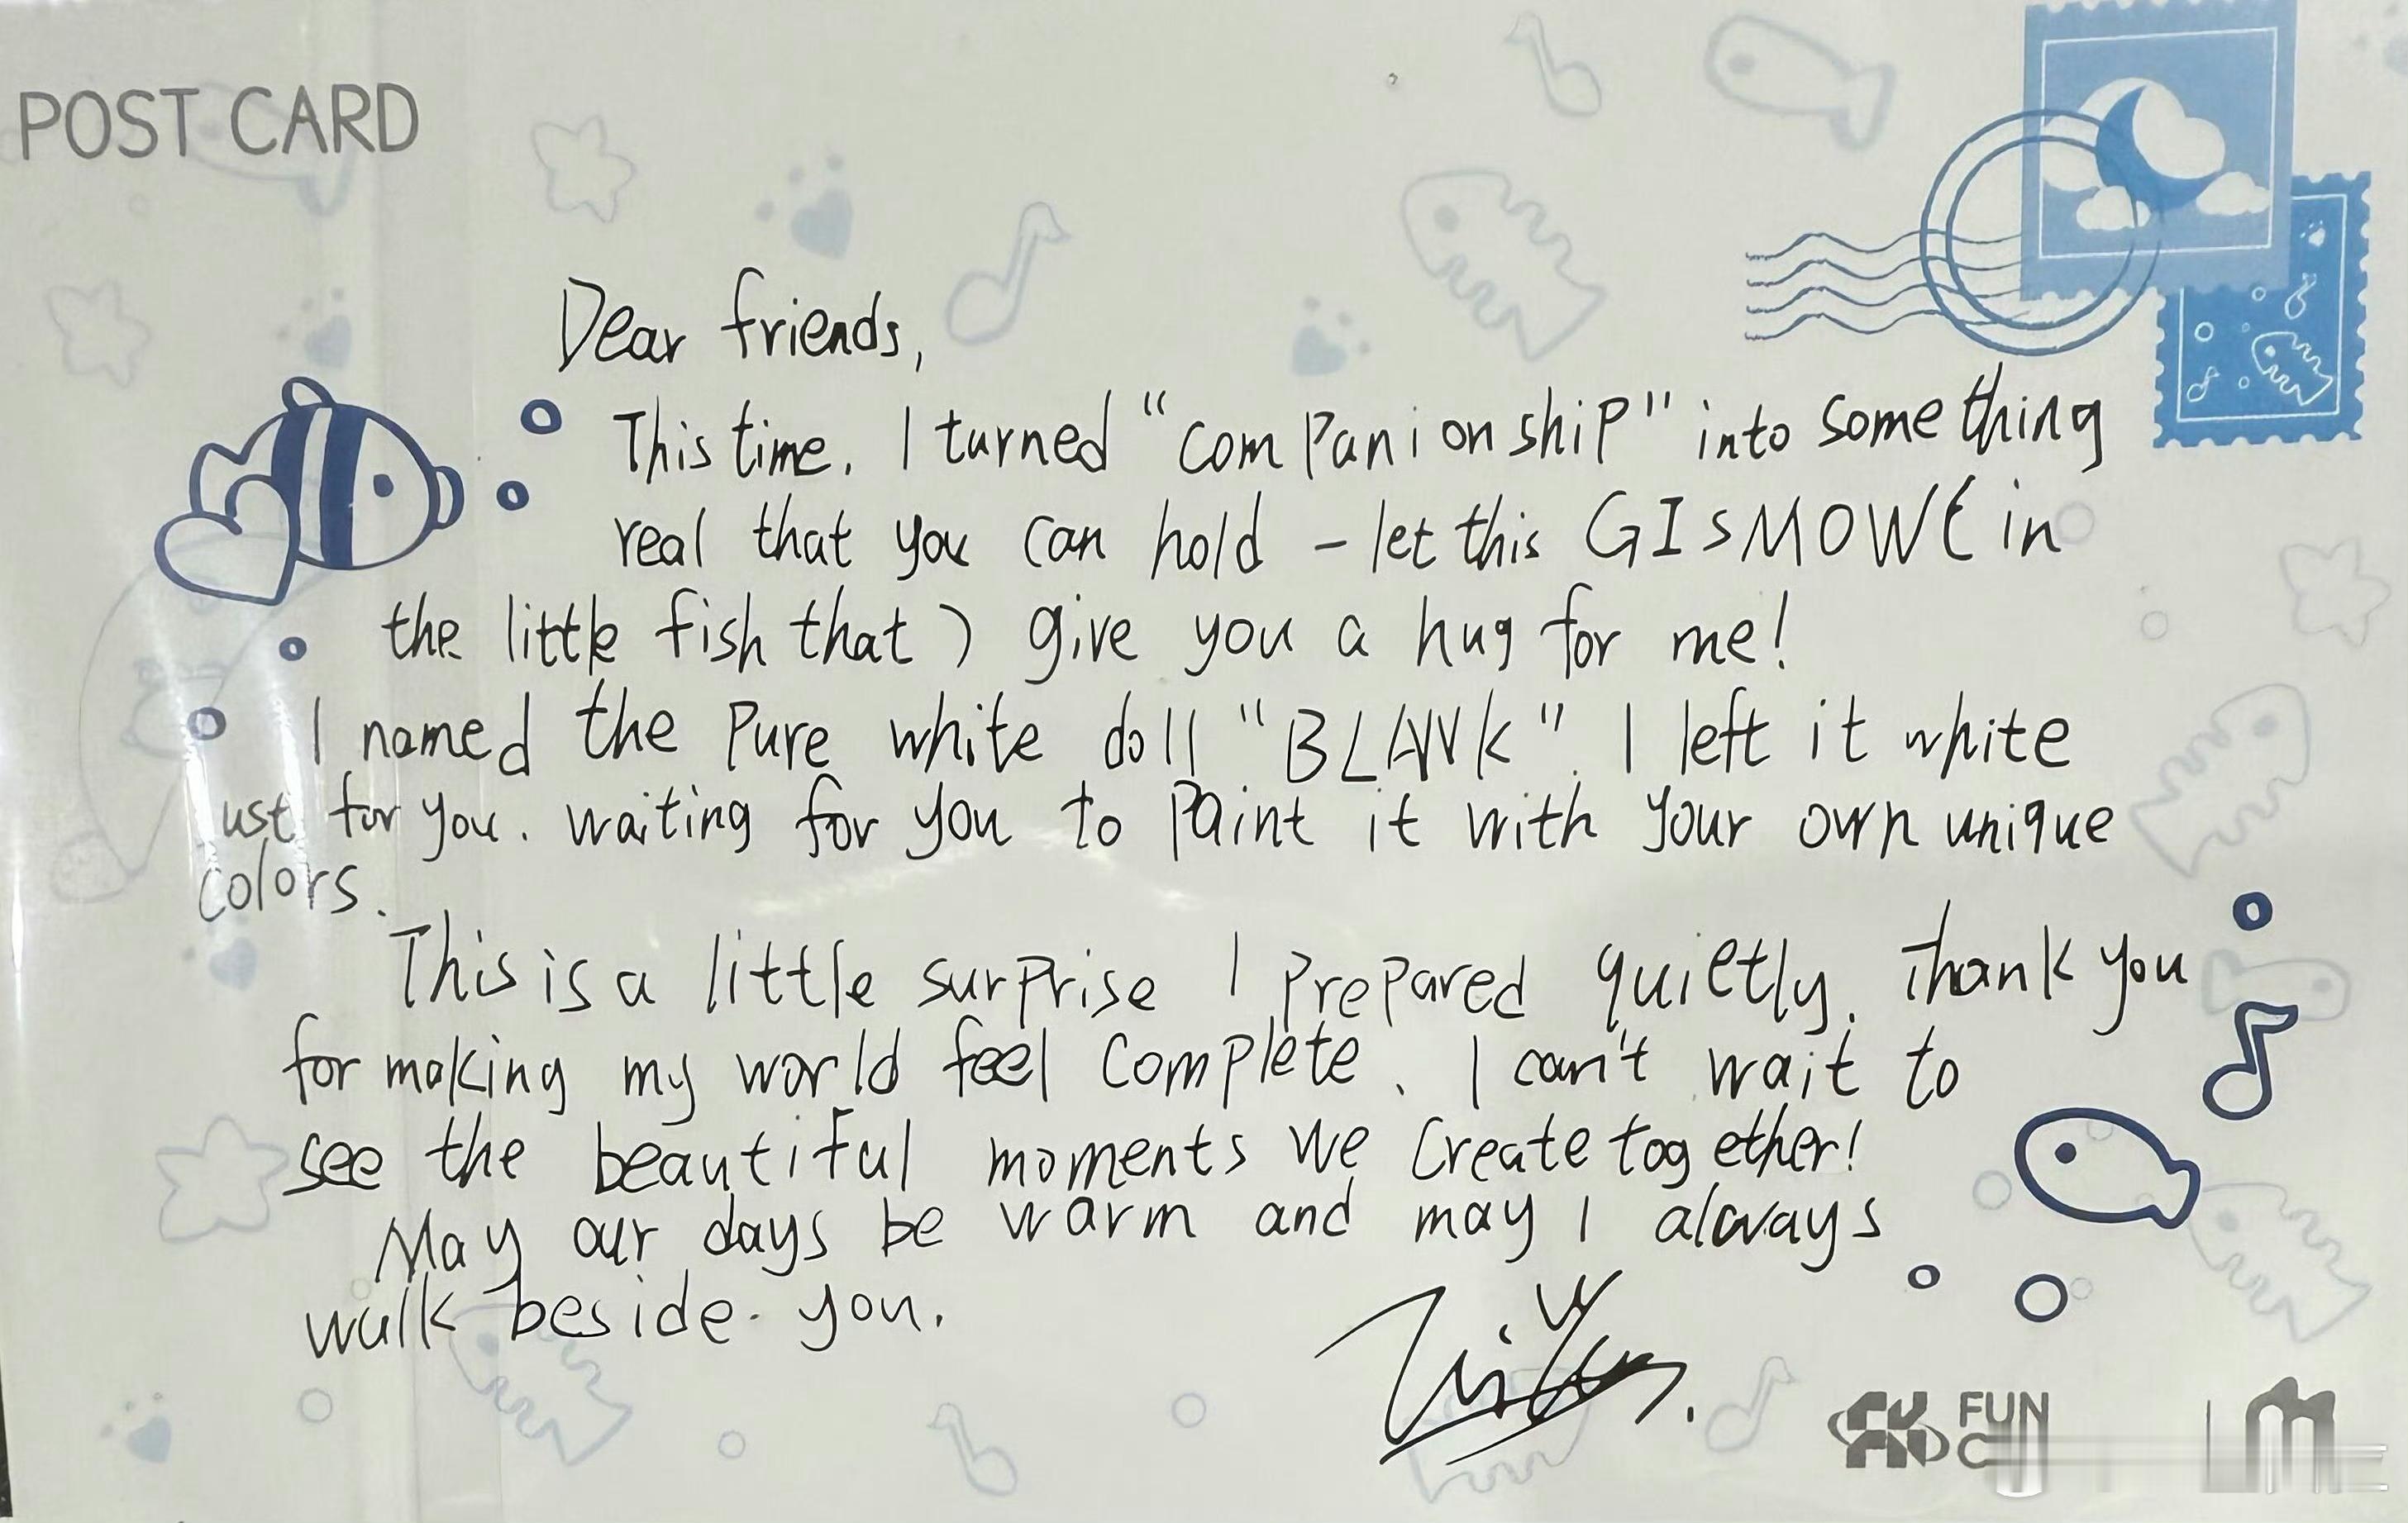 POST CARD
Dear friends,
This time. I turned "companionship" into something
real that you can hold - let this GISMOW( in
the little fish that) give you a hug for me!
I named the Pure white doll "BLANK". I left it white
ust for you. waiting for you to paint it with your own unique
colors.
This is a little surprise I prepared quietly. Thank you
for making my world feel complete. I can't wait to
see the beautiful moments we create together!
May our days be warm and may I always
walk beside. you.
FUN